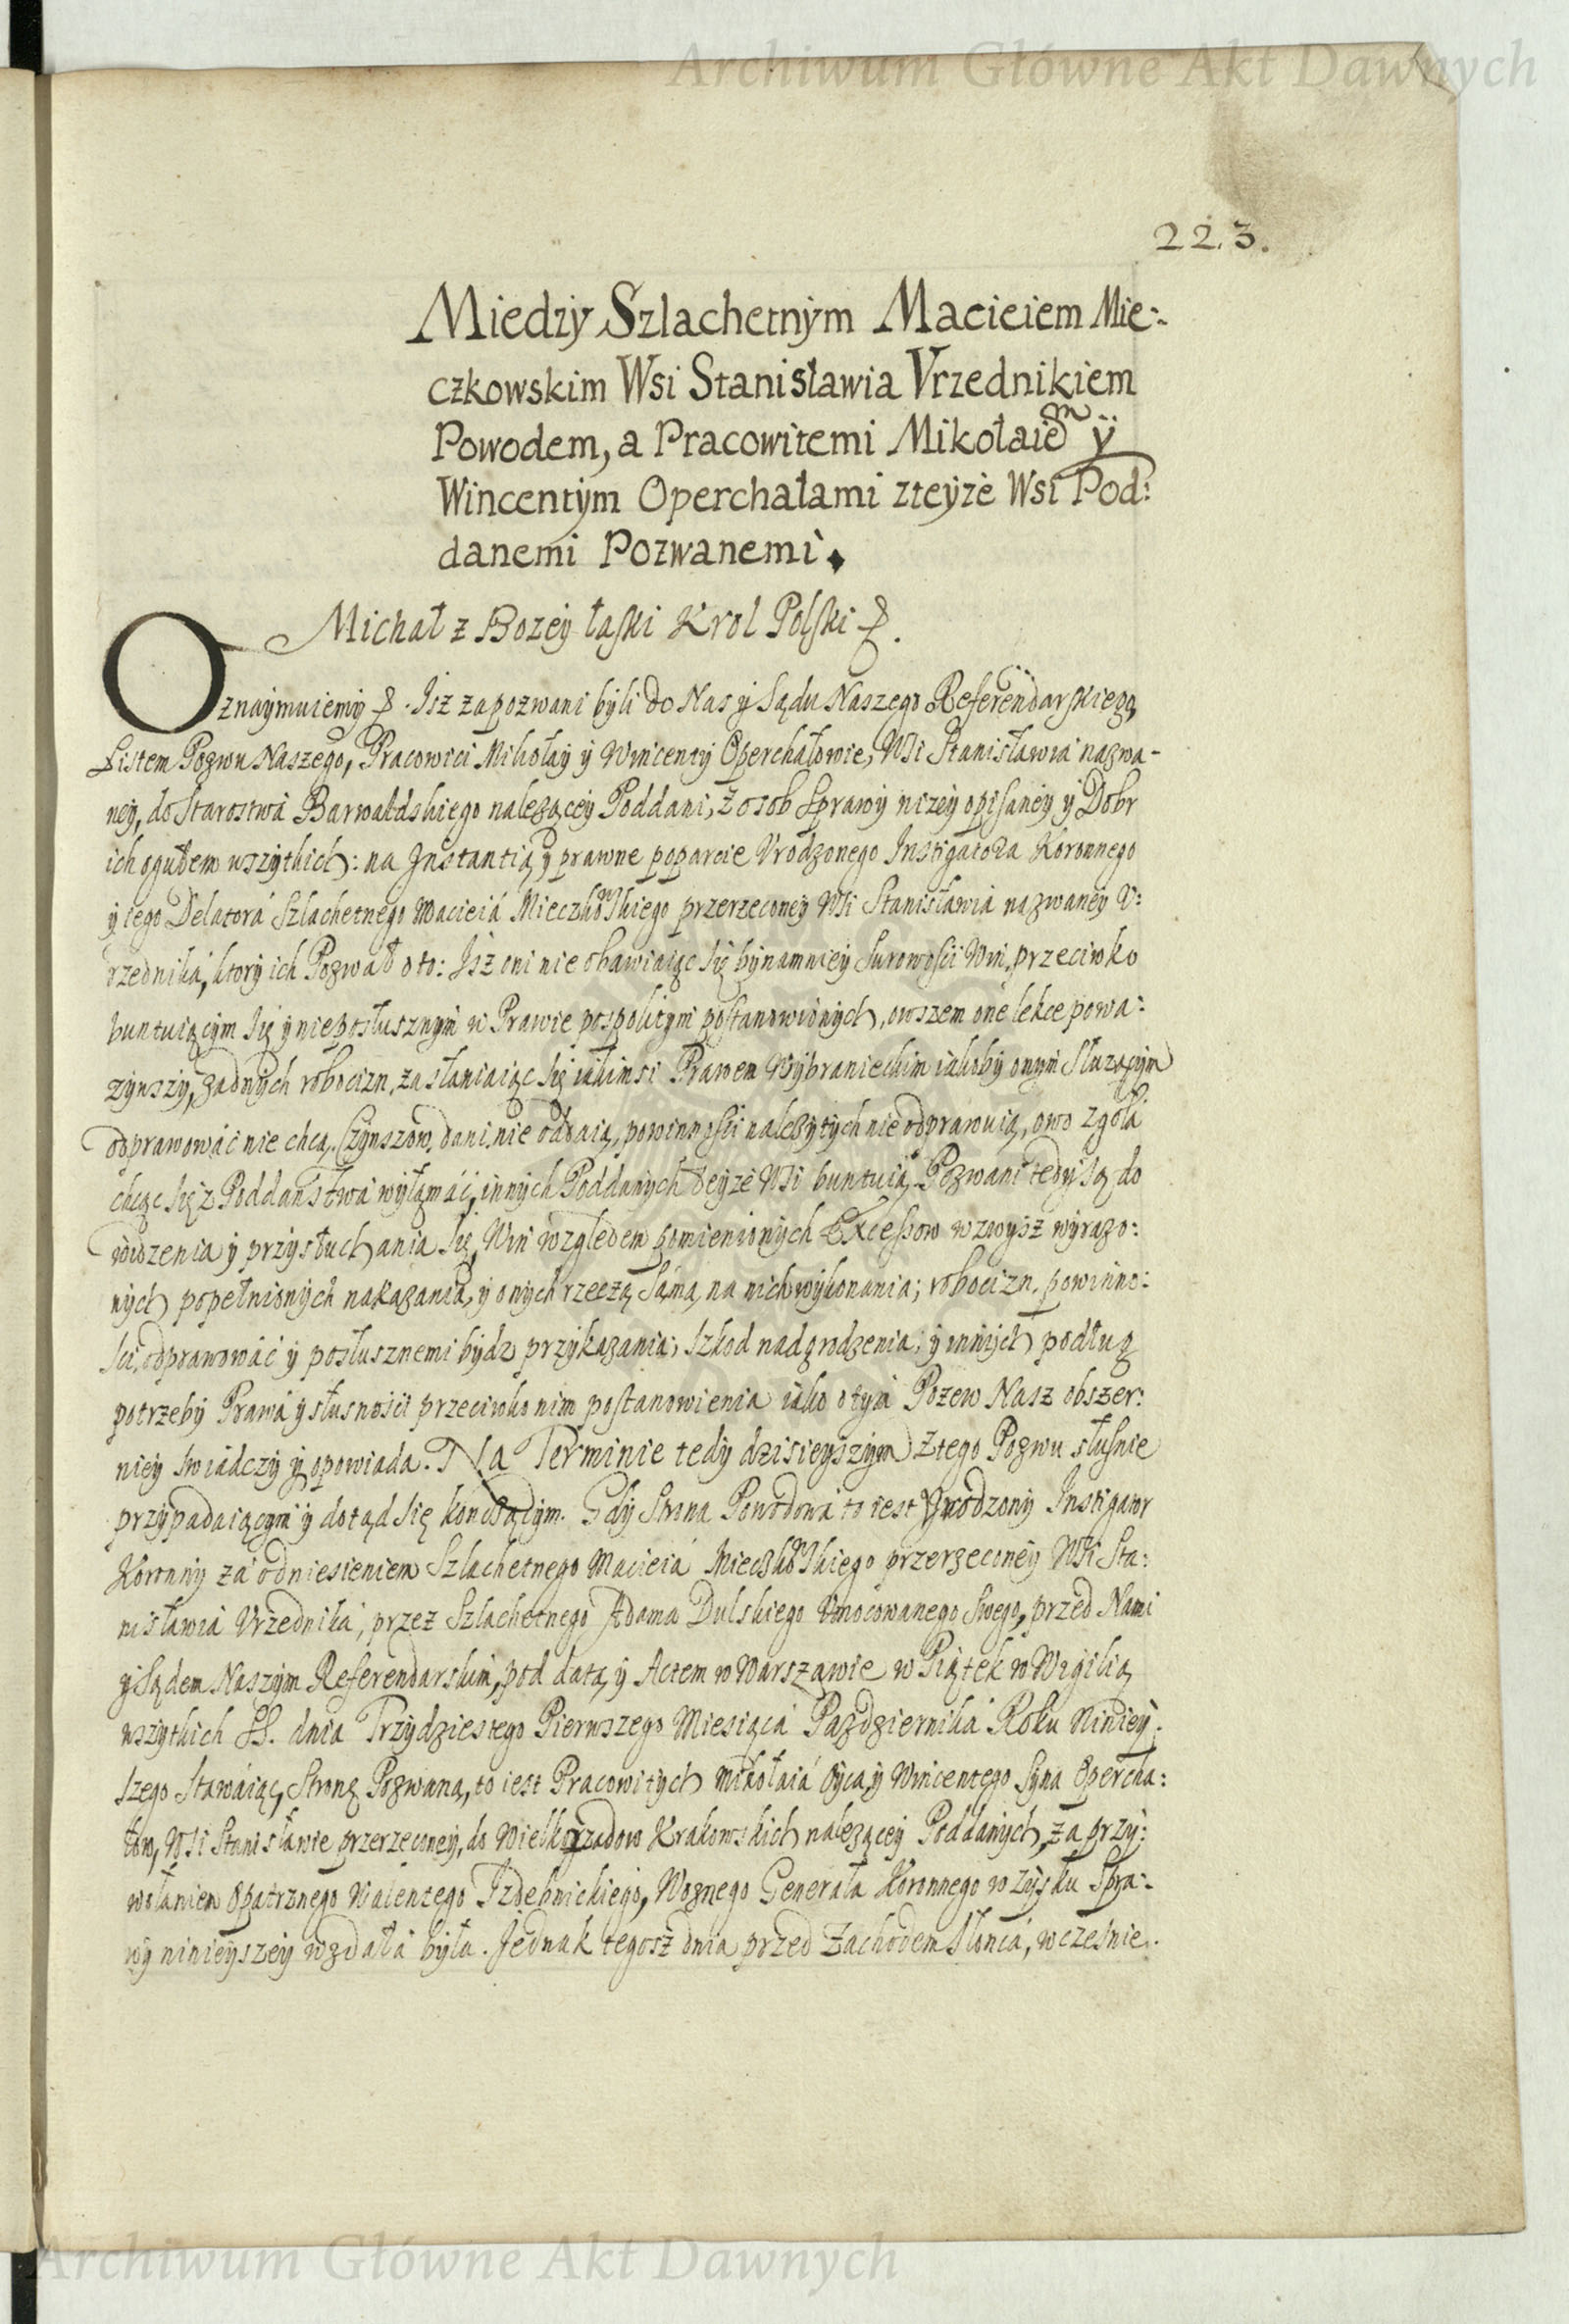 Archiwum Główne Akt Dawnych
223.
Miedzy Szlachetnym Macieiem Mie:
czkowskim Wsi Stanisławia Vrzednikiem
Powodem, a Pracowitemi Mikołaiem ÿ
Wincentÿm Operchałami zteÿże Wsi Pod:
danemi Pozwanemi.
Michał z Bozeÿ łaski Krol Polski &.
Oznaÿmuiemÿ &. Isz zapozwani bÿli do Nas ÿ Sądu Naszego Referendarskiego,
Listem Pozwu Naszego, Pracowici Mikołaÿ ÿ Wincentÿ Operchałowie, Wsi Stanisławia nazwa-
neÿ, do Starostwa Barwałdskiego nalezączeÿ Poddani, z osob Sprawÿ nizeÿ opisaneÿ ÿ Dobr
ich ogułem wszÿtkich: na Instantią ÿ prawne poparcie Vrodzonego Instigatora Koronnego
ÿ iego Delatora Szlachetnego Macieia Mieczkowskiego przerzeconeÿ Wsi Stanisławia nazwaneÿ V:
rzednika, ktorÿ ich Pozwał o to: Isz oni nie obawiaiąc się bÿnamnieÿ Surowosci Win, przeciwko
buntuiącÿm się ÿ nieposłusznÿm w Prawie pospolitÿm postanowionÿch, owszem one lekce powa:
zÿwszÿ, zadnÿch robocizn, zasłaniaiąc się iakimsi Prawem Wÿbranieckim iakobÿ onÿm Słuzącÿm
odprawować nie chcą, Czÿnszow, dani nie oddaią, powinnosci nalezÿtÿch nie odprawuią, owo zgoła
chcąc się z Poddaństwa wÿłamać, innÿch Poddanÿch teÿże Wsi buntuią. Pozwani tedÿ są do
widzenia ÿ przÿsłuchania się, Win względem pomienionÿch Excessow wzwÿsz wÿrazo:
nÿch popełnionÿch nakazania, ÿ onÿch rzeczą samą na nich wÿkonania; robocizn, powinno:
sci odprawować ÿ posłusznemi bÿdz przÿkazania; szkod nadgrodzenia, ÿ innÿch podług
potrzebÿ Prawa ÿ słusnosci przeciwko nim postanowienia iako o tÿm Pozew Nasz obszer:
nieÿ swiadczÿ ÿ opowiada. Na Terminie tedÿ dzisieÿszÿm z tego Pozwu słusnie
przÿpadaiącÿm ÿ dotąd się konczącÿm. Gdÿ Strona Powodowa to iest Vrodzonÿ Instigator
Koronnÿ za odniesieniem Szlachetnego Macieia Mieczkowskiego przerzeconeÿ Wsi Sta:
nisławia Vrzednika, przez Szlachetnego Adama Dulskiego Vmocowanego Swego, przed Nami
ÿ Sądem Naszÿm Referendarskim, pod datą ÿ Actem w Warszawie w Piątek w Wigilią
wszÿtkich SS. dnia Trzÿdziestego Pierwszego Miesiąca Pazdziernika Roku Ninieÿ:
szego Stawaiąc, Stronę Pozwaną, to iest Pracowitÿch Mikołaia Oÿca, ÿ Wincentego Sÿna Opercha:
łow, Wsi Stanisławie przerzeconeÿ, do Wielkorządow Krakowskich nalezączeÿ Poddanÿch, za przÿ:
wołaniem Opatrznego Walentego Izdebnickiego, Woznego Generała Koronnego w zÿsku Spra:
wÿ ninieÿszeÿ wzdała bÿła. Jednak tegosz dnia przed zachodem Słonca, wczesnie
Archiwum Główne Akt Dawnych